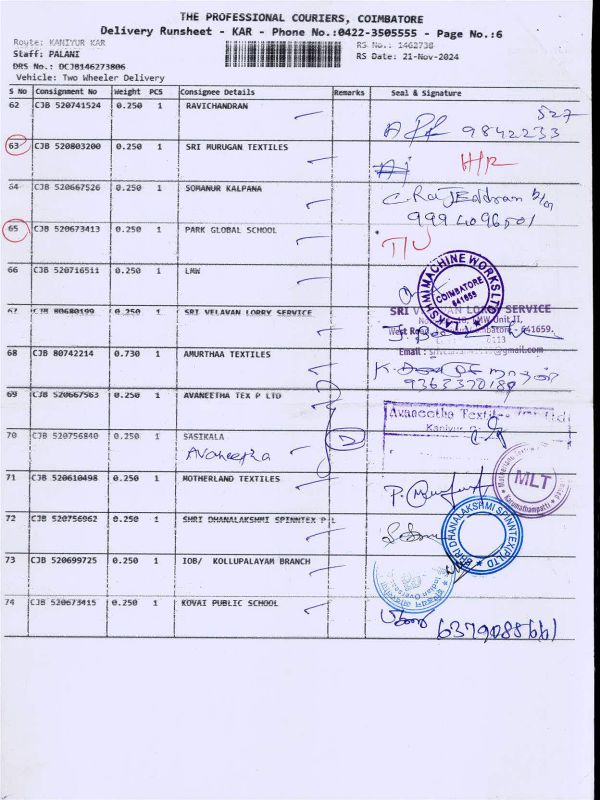 THE PROFESSIONAL COURIERS, COIMBATORE
Delivery Runsheet - KAR - Phone No.:0422-3505555 - Page No.:6
Route: KANIYUR KAR
RS No.: 1462738
Staff: PALANI
RS Date: 21-Nov-2024
DRS No.: DCJB146273806
Vehicle: Two Wheeler Delivery
S No Consignment No Weight PCS Consignee Details Remarks Seal & Signature
62 CJB 520741524 0.250 1 RAVICHANDRAN
527
9842233
63 CJB 520803200 0.250 1 SRI MURUGAN TEXTILES
H/R
64 CJB 520667526 0.250 1 SOMANUR KALPANA
9994096501
65 CJB 520673413 0.250 1 PARK GLOBAL SCHOOL
T/U
66 CJB 520716511 0.250 1 LMW
LAKSHMI MACHINE WORKS LTD
COIMBATORE
641659
67 CJB 80680199 0.250 1 SRI VELAVAN LORRY SERVICE
SRI VELAVAN LORRY SERVICE
LMW Unit II,
West Road, Coimbatore - 641659.
Email : @gmail.com
68 CJB 80742214 0.730 1 AMURTHAA TEXTILES
9363370189
69 CJB 520667563 0.250 1 AVANEETHA TEX P LTD
Avaneetha Textiles
Kaniyur
70 CJB 520756840 0.250 1 SASIKALA
Avaneetha
71 CJB 520610498 0.250 1 MOTHERLAND TEXTILES
MLT
72 CJB 520756962 0.250 1 SHRI DHANALAKSHMI SPINNTEX P L
SHRI DHANALAKSHMI SPINNTEX(P)LTD
73 CJB 520699725 0.250 1 IOB/ KOLLUPALAYAM BRANCH
74 CJB 520673415 0.250 1 KOVAI PUBLIC SCHOOL
6379085661